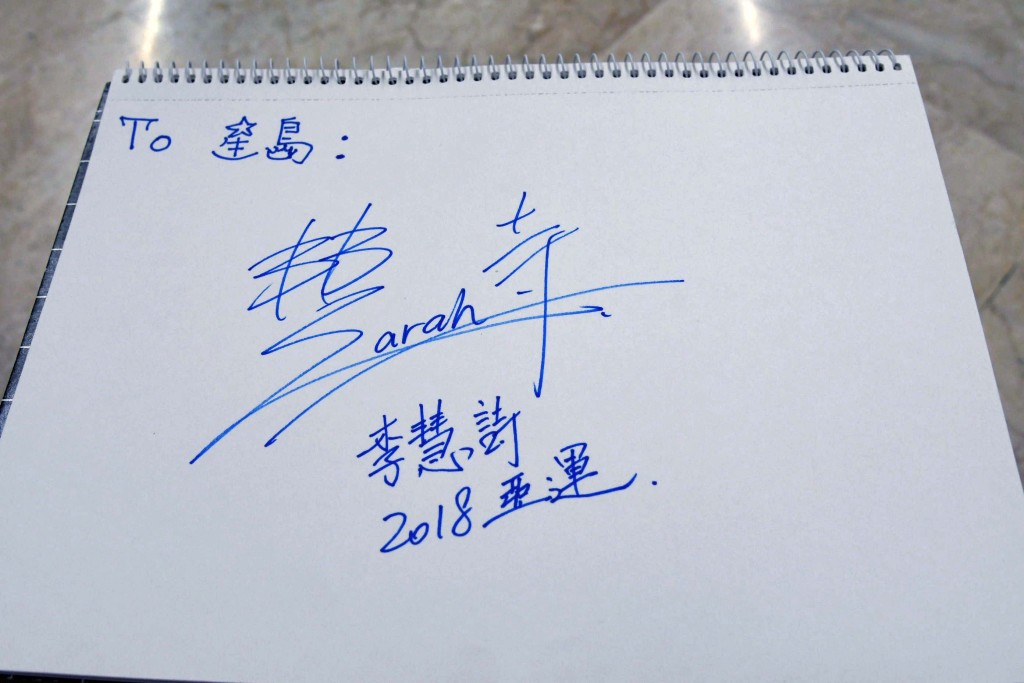 To 星島:
Sarah
李慧詩
2018 亞運.